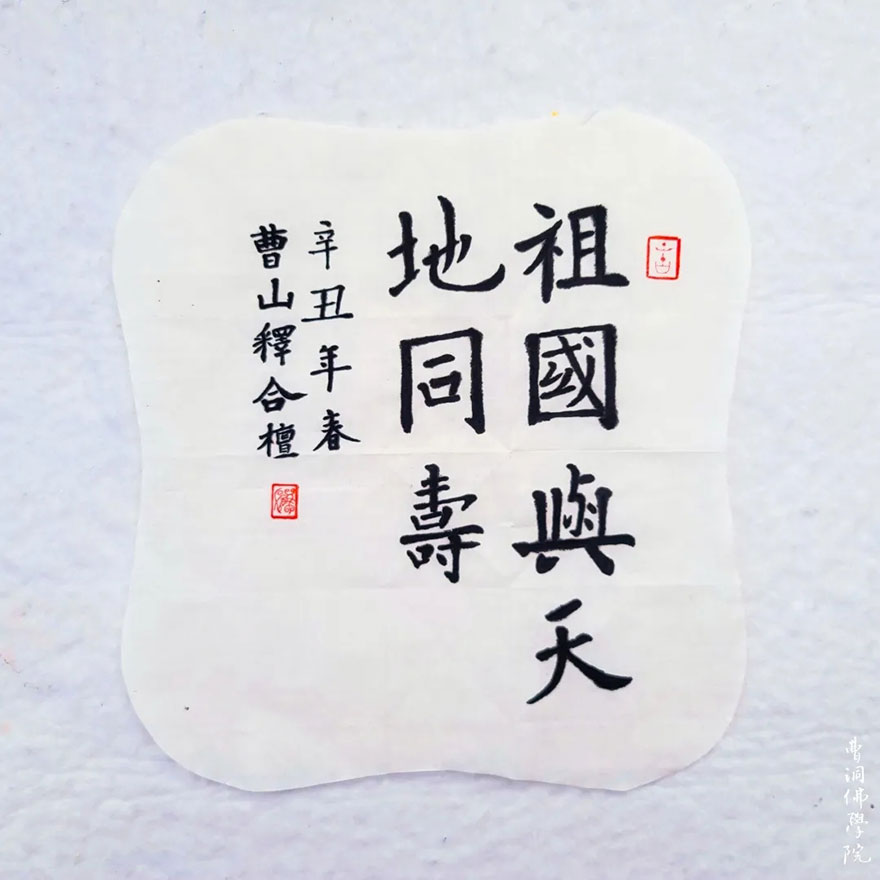 祖國與天
地同壽
辛丑年春
曹山釋合檀
曹洞佛學院